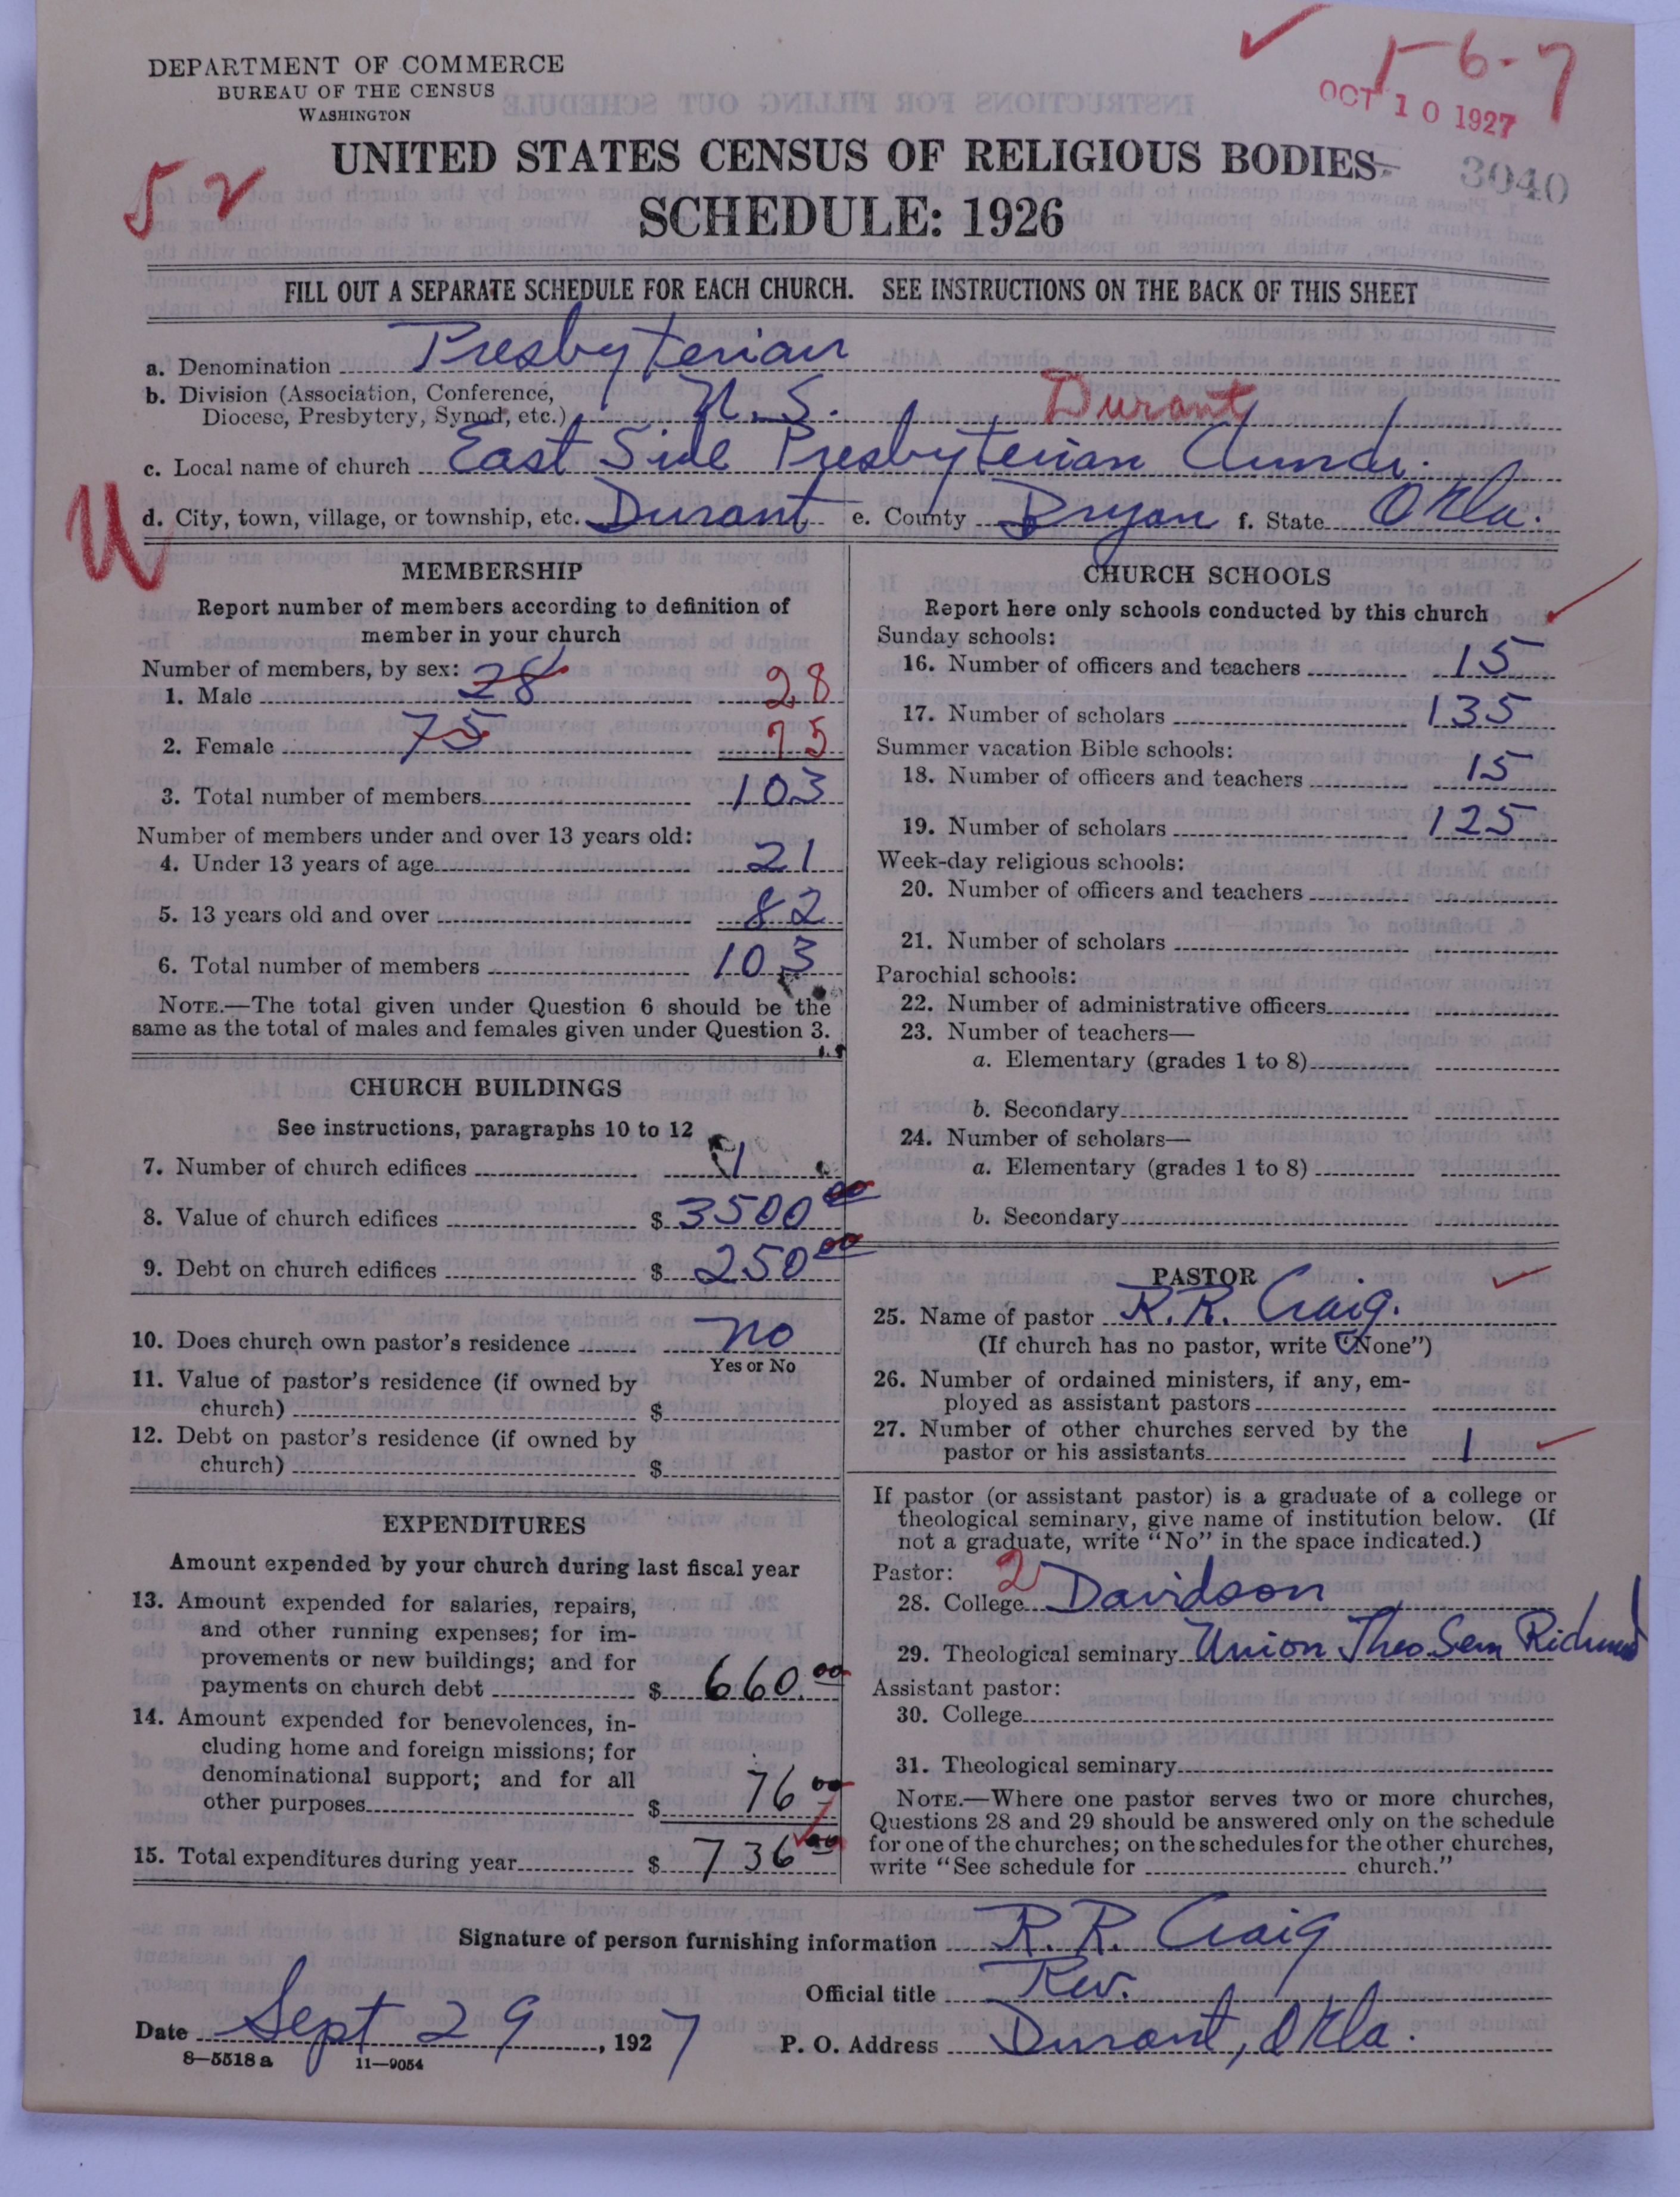 DEPARTMENT OF COMMERCE
BUREAU OF THE CENSUS
WASHINGTON
1-6-7
OCT 10 1927
52
UNITED STATES CENSUS OF RELIGIOUS BODIES
3040
SCHEDULE: 1926
FILL OUT A SEPARATE SCHEDULE FOR EACH CHURCH. SEE INSTRUCTIONS ON THE BACK OF THIS SHEET
a. Denomination Presbyterian
b. Division (Association, Conference,
Diocese, Presbytery, Synod, etc.) U.S. Durant
c. Local name of church East Side Presbyterian Church.
U
d. City, town, village, or township, etc. Durant e. County Bryan f. State Okla.
MEMBERSHIP
Report number of members according to definition of
member in your church
Number of members, by sex:
1. Male 28 28
2. Female 75 75
3. Total number of members 103
Number of members under and over 13 years old:
4. Under 13 years of age 21
5. 13 years old and over 82
6. Total number of members 103
NOTE.—The total given under Question 6 should be the
same as the total of males and females given under Question 3.
CHURCH BUILDINGS
See instructions, paragraphs 10 to 12
7. Number of church edifices 1
8. Value of church edifices $ 3500 00
9. Debt on church edifices $ 250 00
10. Does church own pastor's residence no
Yes or No
11. Value of pastor's residence (if owned by
church) $
12. Debt on pastor's residence (if owned by
church) $
EXPENDITURES
Amount expended by your church during last fiscal year
13. Amount expended for salaries, repairs,
and other running expenses; for im-
provements or new buildings; and for
payments on church debt $ 660.00
14. Amount expended for benevolences, in-
cluding home and foreign missions; for
denominational support; and for all
other purposes $ 76 00
15. Total expenditures during year $ 736 00
CHURCH SCHOOLS
Report here only schools conducted by this church
Sunday schools:
16. Number of officers and teachers 15
17. Number of scholars 135
Summer vacation Bible schools:
18. Number of officers and teachers 15
19. Number of scholars 125
Week-day religious schools:
20. Number of officers and teachers
21. Number of scholars
Parochial schools:
22. Number of administrative officers
23. Number of teachers—
a. Elementary (grades 1 to 8)
b. Secondary
24. Number of scholars—
a. Elementary (grades 1 to 8)
b. Secondary
PASTOR
25. Name of pastor R. R. Craig.
(If church has no pastor, write "None")
26. Number of ordained ministers, if any, em-
ployed as assistant pastors
27. Number of other churches served by the
pastor or his assistants 1
If pastor (or assistant pastor) is a graduate of a college or
theological seminary, give name of institution below. (If
not a graduate, write "No" in the space indicated.)
Pastor: 2
28. College Davidson
29. Theological seminary Union Theo. Sem Richmond
Assistant pastor:
30. College
31. Theological seminary
NOTE.—Where one pastor serves two or more churches,
Questions 28 and 29 should be answered only on the schedule
for one of the churches; on the schedules for the other churches,
write "See schedule for church."
Signature of person furnishing information R. R. Craig
Official title Rev.
Date Sept 29, 1927 P. O. Address Durant, Okla.
8—5518a 11—9054